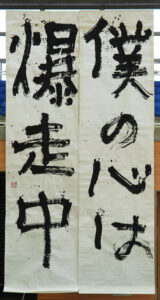 僕の心は
爆走中